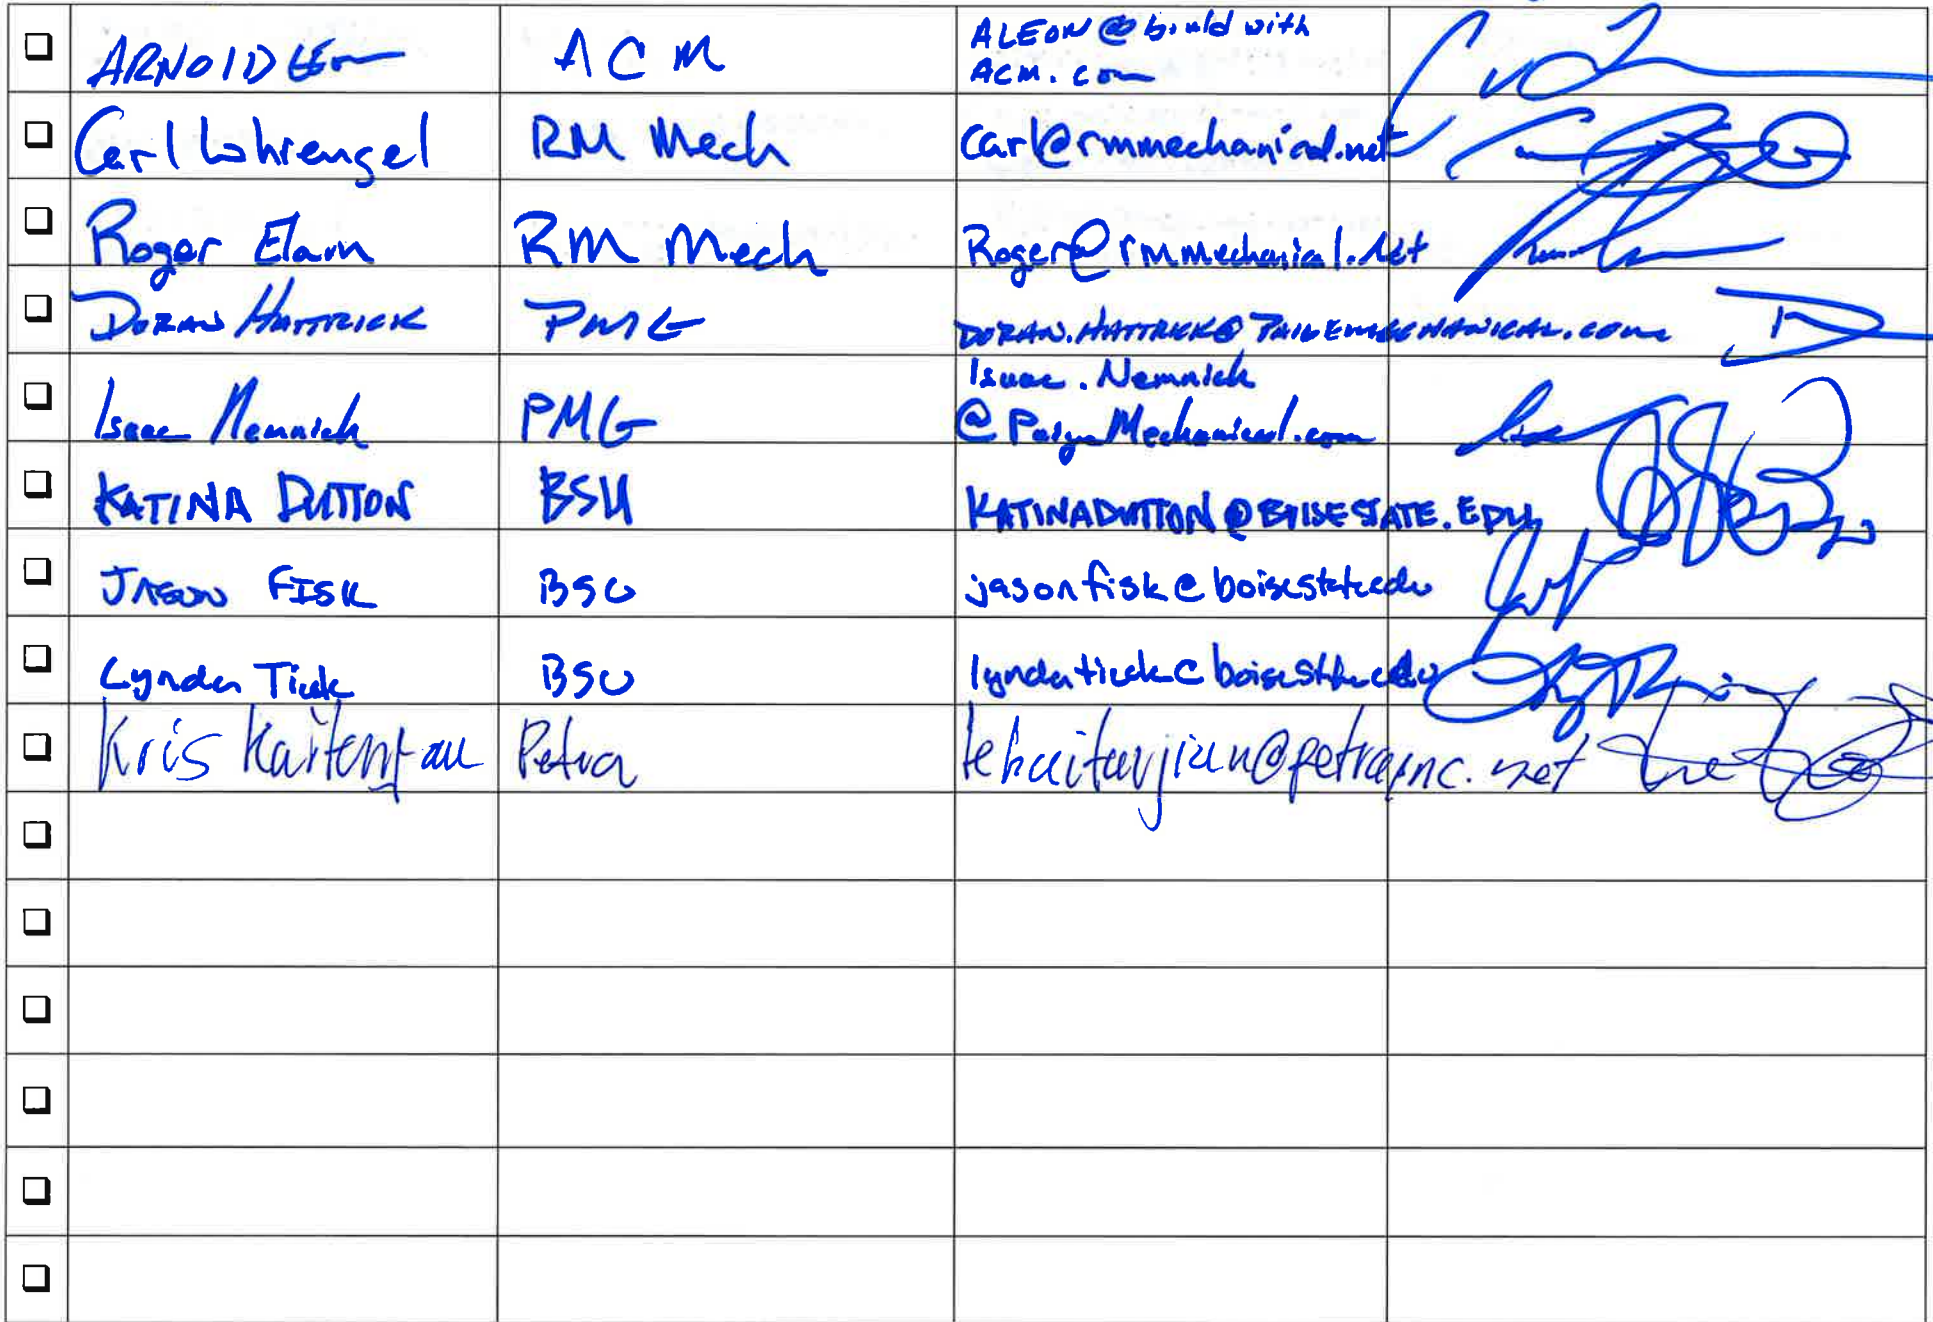 ARNOLD Leon ACM ALEON@buildwith
ACM.com
Carl Wohrengel RM Mech carl@rmmechanical.net
Roger Elam RM Mech Roger@rmmechanical.Net
DORAN HATTRICK PMG DORAN.HATTRICK@PAIGEMECHANICAL.com
Isaac Nemnich PMG Isaac.Nemnich
@PaigeMechanical.com
KATINA DUTTON BSU KATINADUTTON@BOISESTATE.EDU
JASON FISK BSU jasonfisk@boisestate.edu
Lynda Tieck BSU lyndatieck@boisestate.edu
Kris Petra